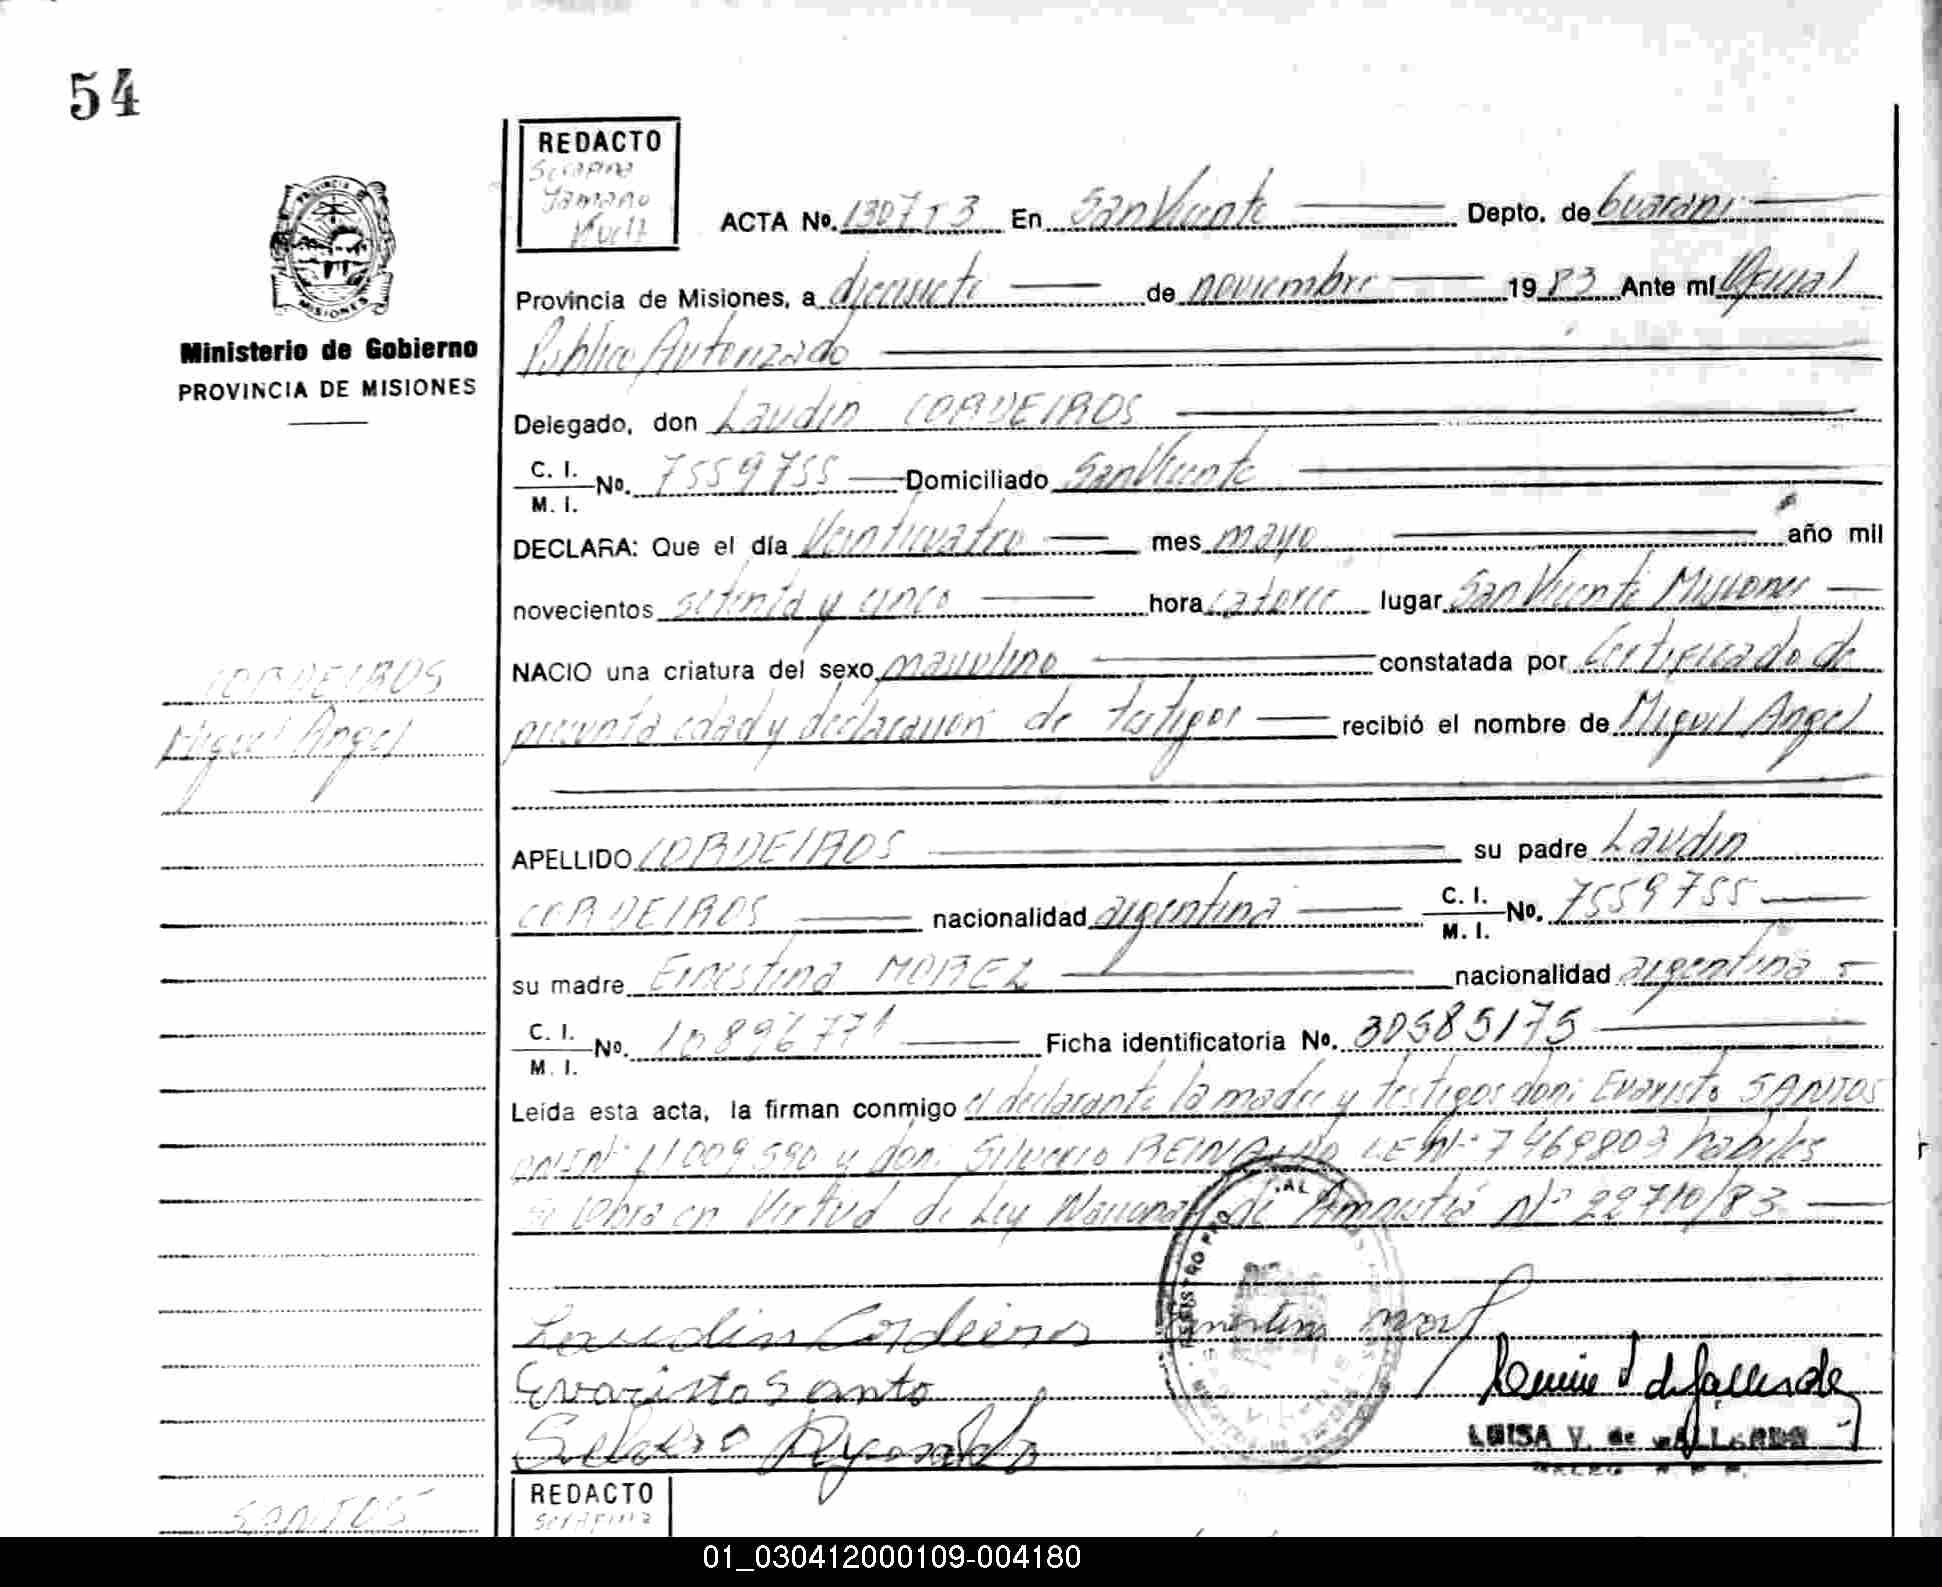 54
REDACTO
Serafina
ACTA No. 1307 T 3 En San Vicente Depto. de Guarani
Provincia de Misiones, a diecisiete de noviembre 19 83 Ante mi Oficial
Publico Autorizado
Ministerio de Gobierno
PROVINCIA DE MISIONES
Delegado, don Laudin CORDEIROS
C. I.
M. I. No. 7559755 Domiciliado San Vicente
DECLARA: Que el día Veinticuatro mes mayo año mil
novecientos setenta y cinco hora catorce lugar San Vicente Misiones
NACIO una criatura del sexo masculino constatada por Certificado de
presunta edad y declaracion de testigos recibió el nombre de Miguel Angel
CORDEIROS
Miguel Angel
APELLIDO CORDEIROS su padre Laudin
CORDEIROS nacionalidad argentina C. I.
M. I. No. 7559755
su madre Ernestina MOREL nacionalidad argentina
C. I.
M. I. No. 10896771 Ficha identificatoria No. 30585175
Leída esta acta, la firman conmigo el declarante la madre y testigos don: Evaristo SANTOS
DNI Nº 11009590 y don: Silverio REINALDO LE Nº 7469803 habiles
Se Labra en Virtud de Ley Nacional de Amnistia Nº 22710/83
REGISTRO PRO
Laudin Cordeiros
Ernestina Morel
Evaristo Santo
LUISA V. de GALLARDO
REDACTO
Serafina
SANTOS
01_030412000109-004180